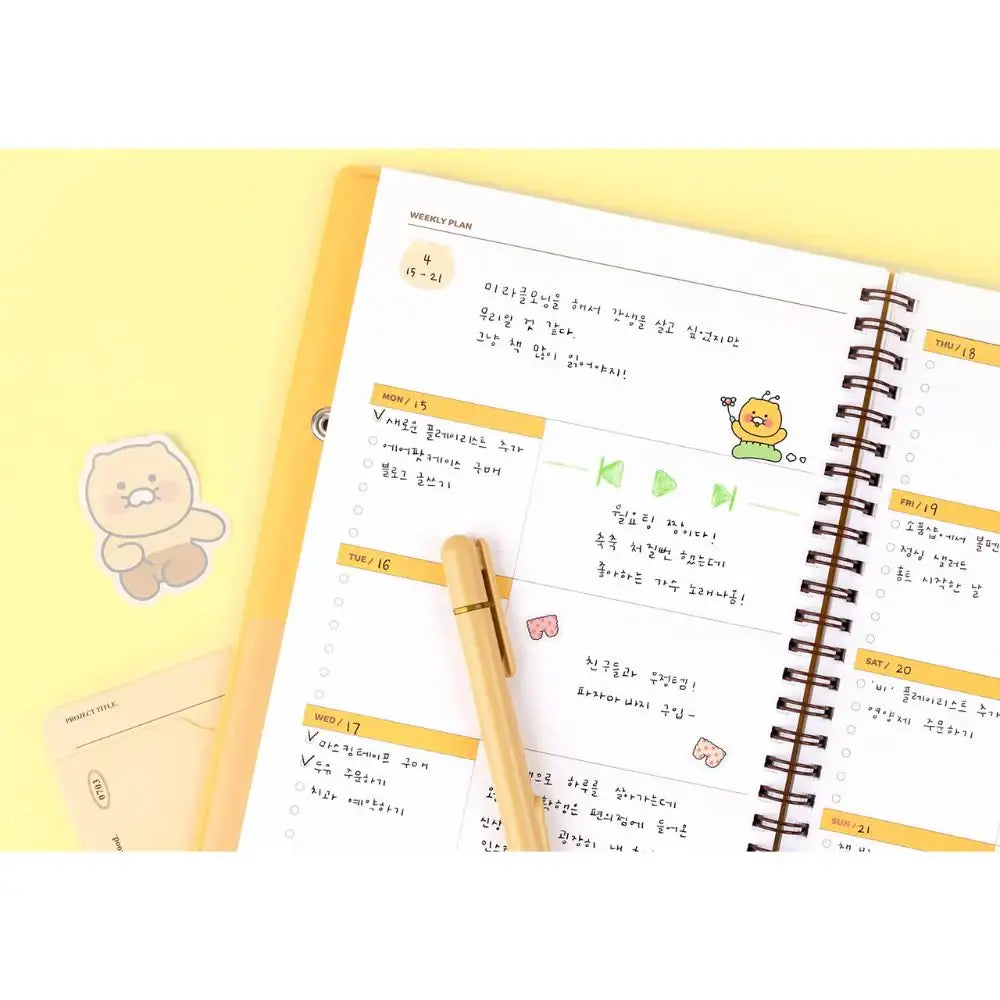 WEEKLY PLAN
4
15 - 21
미라클모닝을 해서 갓생을 살고 싶었지만
무리일 것 같다.
그냥 책 많이 읽어야지!
MON / 15
새로운 플레이리스트 추가
에어팟케이스 구매
블로그 글쓰기
월요팅 짱이다!
축축 처질뻔 했는데
좋아하는 가수 노래나옴!
TUE / 16
친구들과 우정템!
파자마 바지 구입~
WED / 17
마스킹테이프 구매
두유 주문하기
치과 예약하기
하루를 살아가는데
편의점에 들어온
신상
굉장히 내
THU / 18
FRI / 19
소품샵에서 볼펜
점심 샐러드
홈트 시작한 날
SAT / 20
'비' 플레이리스트 추가
영양제 주문하기
SUN / 21
책
PROJECT TITLE.
0703